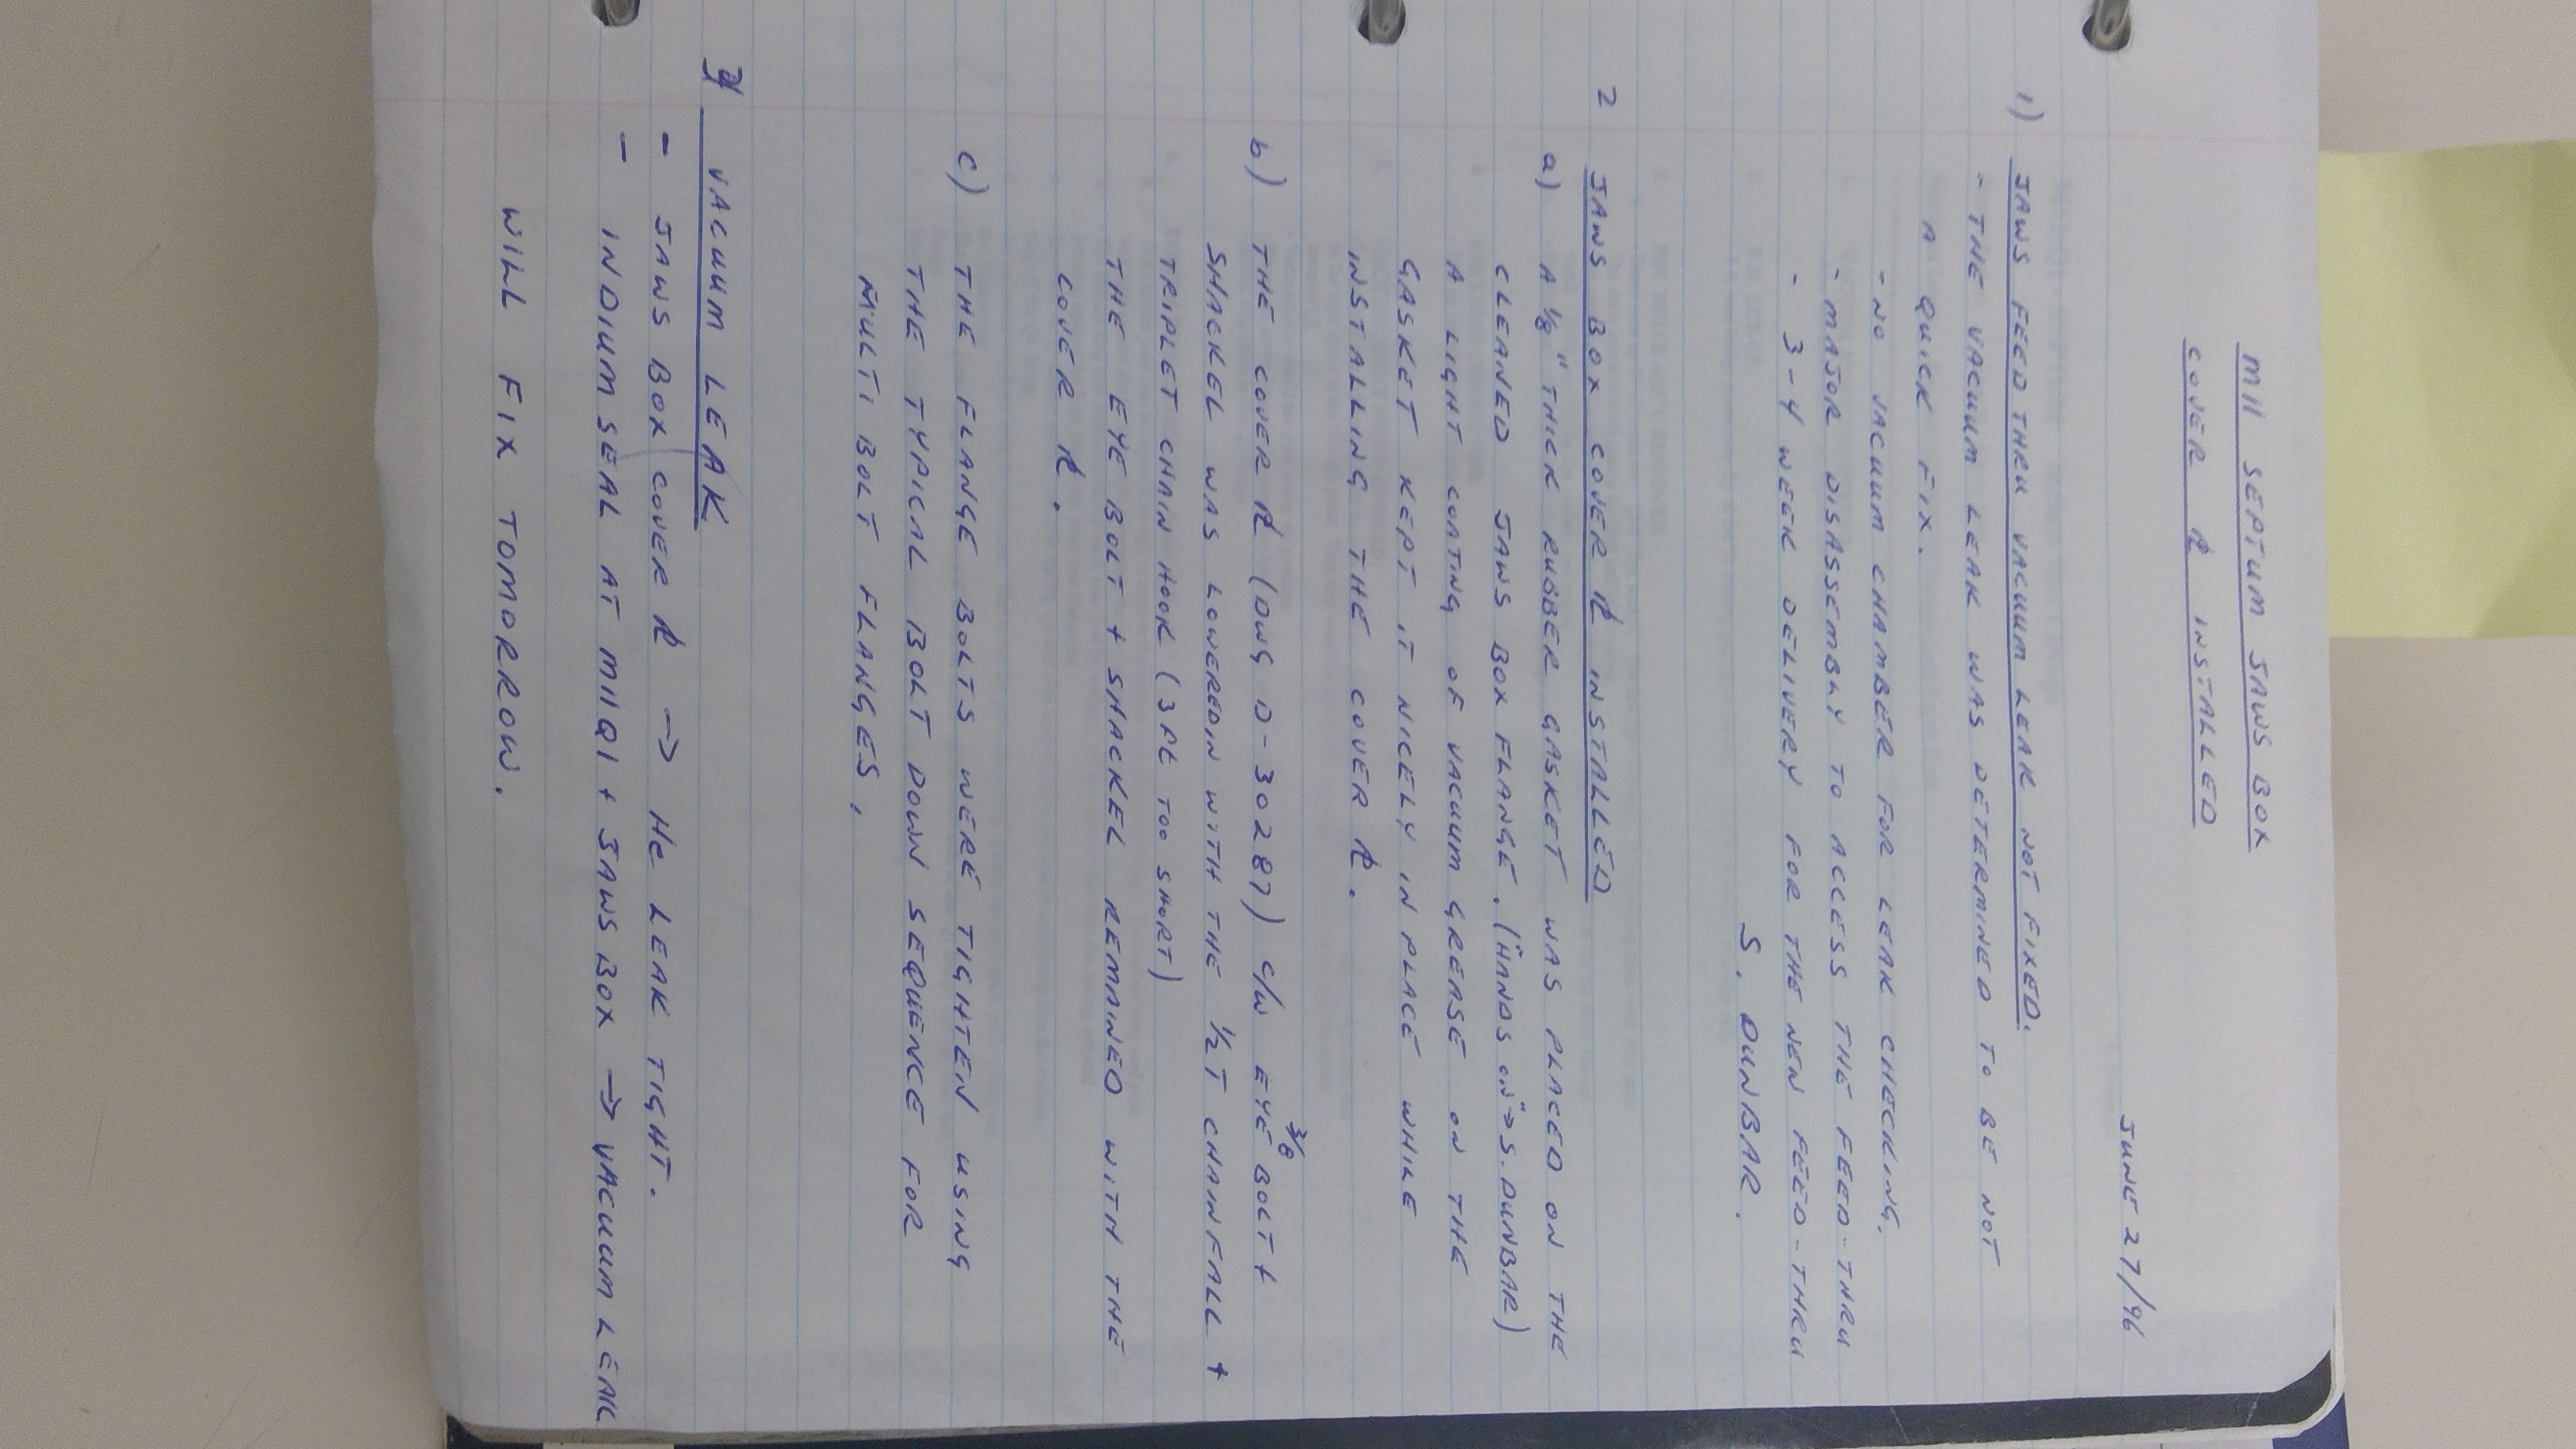 JUNE 27/96
M11 SEPTUM JAWS BOX
COVER ℞ INSTALLED
1) JAWS FEED THRU VACUUM LEAK NOT FIXED.
- THE VACUUM LEAK WAS DETERMINED TO BE NOT
A QUICK FIX.
- NO VACUUM CHAMBER FOR LEAK CHECKING.
- MAJOR DISASSEMBLY TO ACCESS THE FEED-THRU
- 3-4 WEEK DELIVERY FOR THE NEW FEED-THRU
S. DUNBAR.
2 JAWS BOX COVER ℞ INSTALLED
a) A 1/8" THICK RUBBER GASKET WAS PLACED ON THE
CLEANED JAWS BOX FLANGE. ("HANDS ON" → S. DUNBAR)
A LIGHT COATING OF VACUUM GREASE ON THE
GASKET KEPT IT NICELY IN PLACE WHILE
INSTALLING THE COVER ℞.
b) THE COVER ℞ (DWG D-30287) C/W 3/8 EYE BOLT +
SHACKEL WAS LOWERED IN WITH THE 1/2T CHAINFALL +
TRIPLET CHAIN HOOK (3PC TOO SHORT)
THE EYE BOLT + SHACKEL REMAINED WITH THE
COVER ℞.
c) THE FLANGE BOLTS WERE TIGHTEN USING
THE TYPICAL BOLT DOWN SEQUENCE FOR
MULTI BOLT FLANGES.
3) VACUUM LEAK
- JAWS BOX COVER ℞ → He LEAK TIGHT.
- INDIUM SEAL AT M11Q1 + JAWS BOX → VACUUM LEAK
WILL FIX TOMORROW.